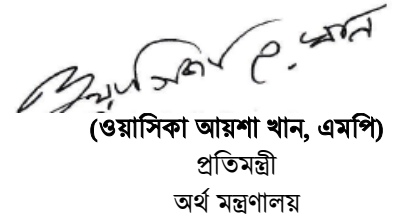 ওয়াসিকা আ. খান
(ওয়াসিকা আয়শা খান, এমপি)
প্রতিমন্ত্রী
অর্থ মন্ত্রণালয়